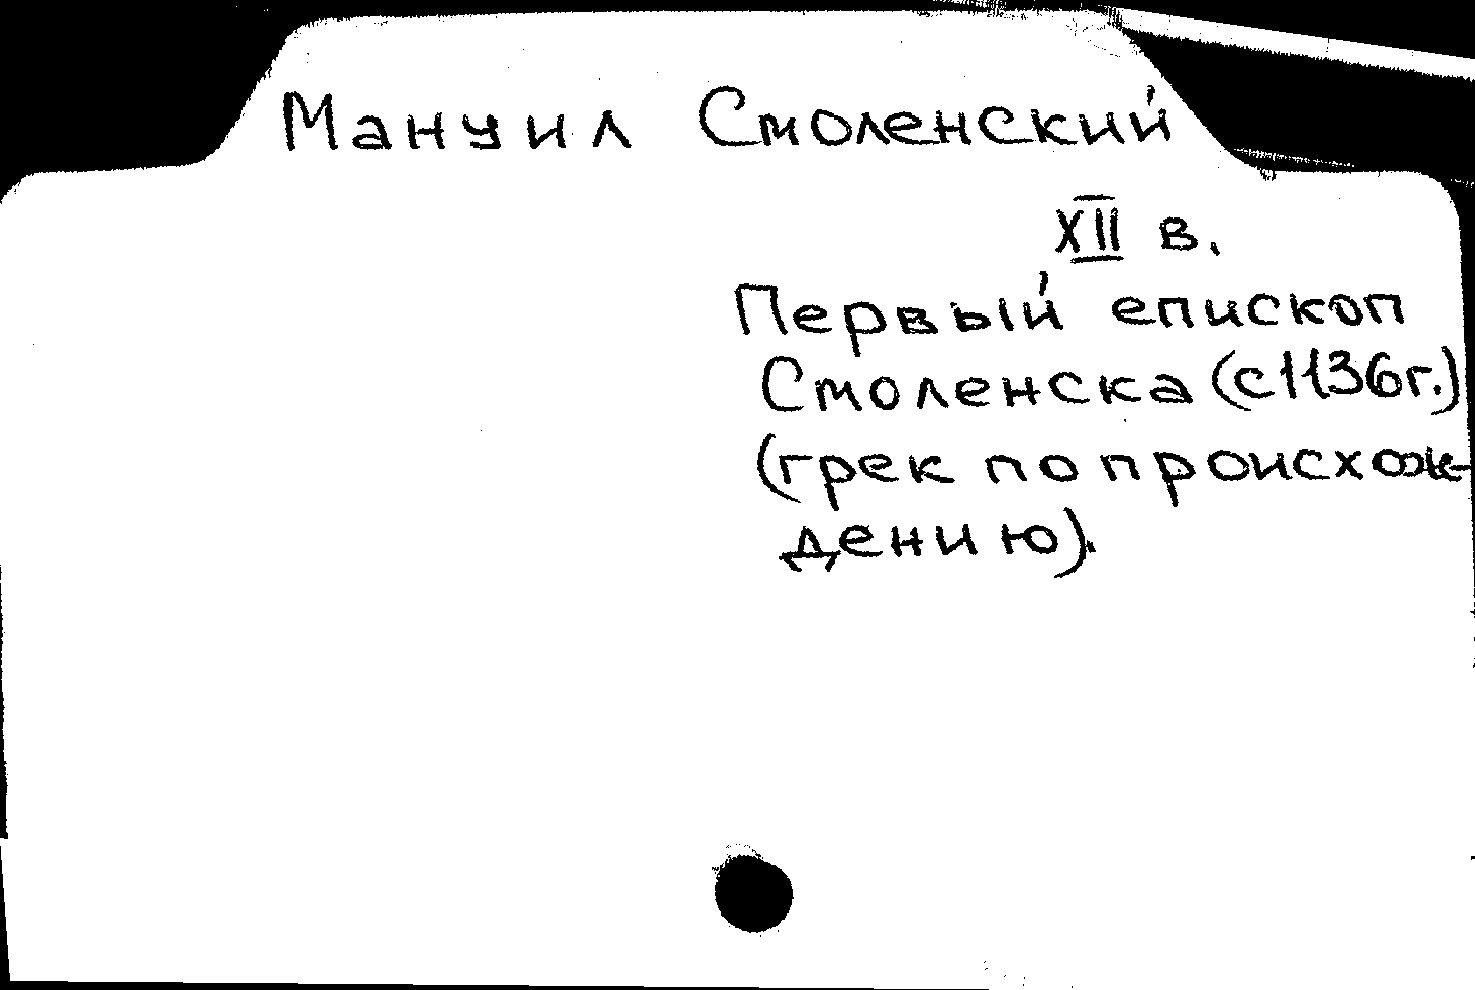 Мануил Смоленский
XII в.
Первый епископ
Смоленска (с 1136г.)
(грек по происхож-
дению).